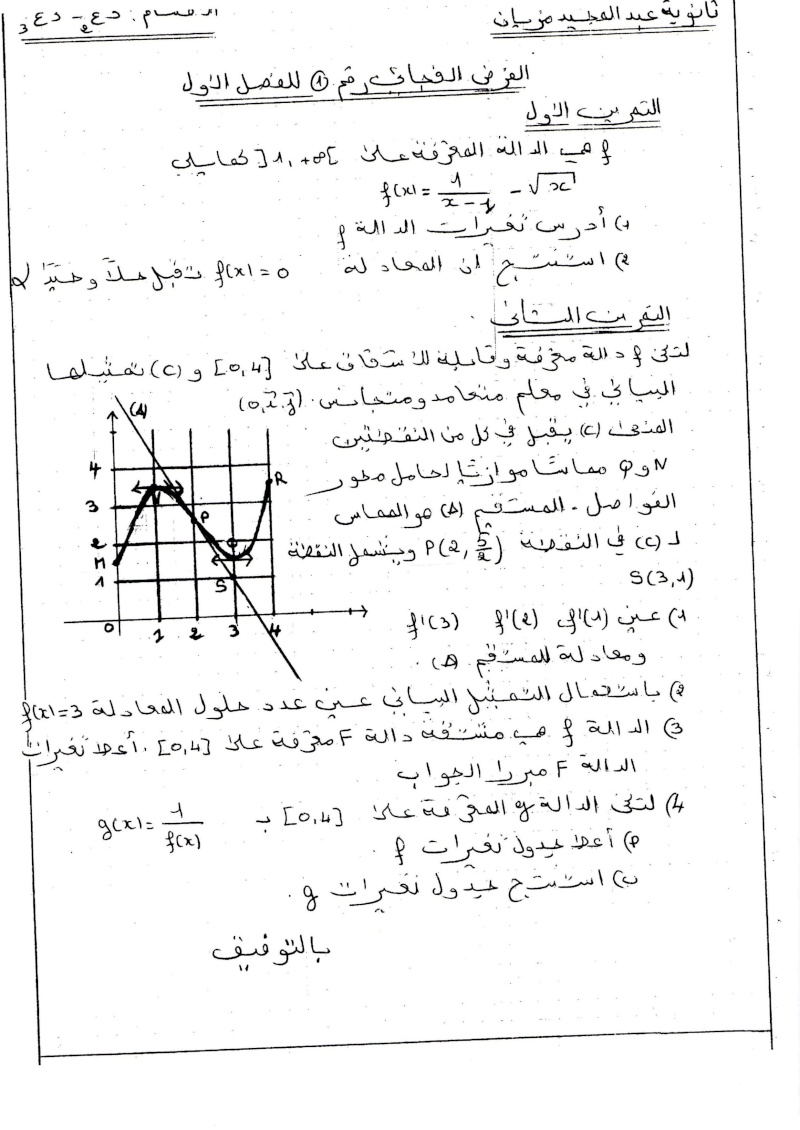 ثانوية عبد المجيد مزيان الأقسام: 3 د ع 2 - د ع
الفرض الفجائي رقم ① للفصل الأول
التمرين الأول
f هي الدالة المعرفة على ]1, +∞[ كمايلي
f(x) = 1/(x-1) - √x
1) أدرس تغيرات الدالة f
2) استنتج أن المعادلة f(x)=0 تقبل حلاً وحيدًا α
التمرين الثاني.
لتكن f دالة معرفة وقابلة للاشتقاق على [0,4] و (C) تمثيلها
البياني في معلم متعامد ومتجانس. (0,i⃗,j⃗)
المنحنى (C) يقبل في كل من النقطتين
N و Q مماسًا موازيًا لحامل محور
الفواصل. المستقيم (Δ) هو المماس
لـ (C) في النقطة P(2, 5/2) ويشمل النقطة
S(3,1)
(Δ)
4
3
2
1
M
N
P
Q
R
S
0 1 2 3 4
1) عين f'(1)، f'(2) f'(3)
ومعادلة للمستقيم (Δ).
2) باستعمال التمثيل البياني عين عدد حلول المعادلة f(x)=3
3) الدالة f هي مشتقة دالة F معرفة على [0,4]. أعط تغيرات
الدالة F مبررا الجواب
4) لتكن الدالة g المعرفة على [0,4] بـ g(x) = 1/f(x)
أ) أعط جدول تغيرات f.
ب) استنتج جدول تغيرات g.
بالتوفيق